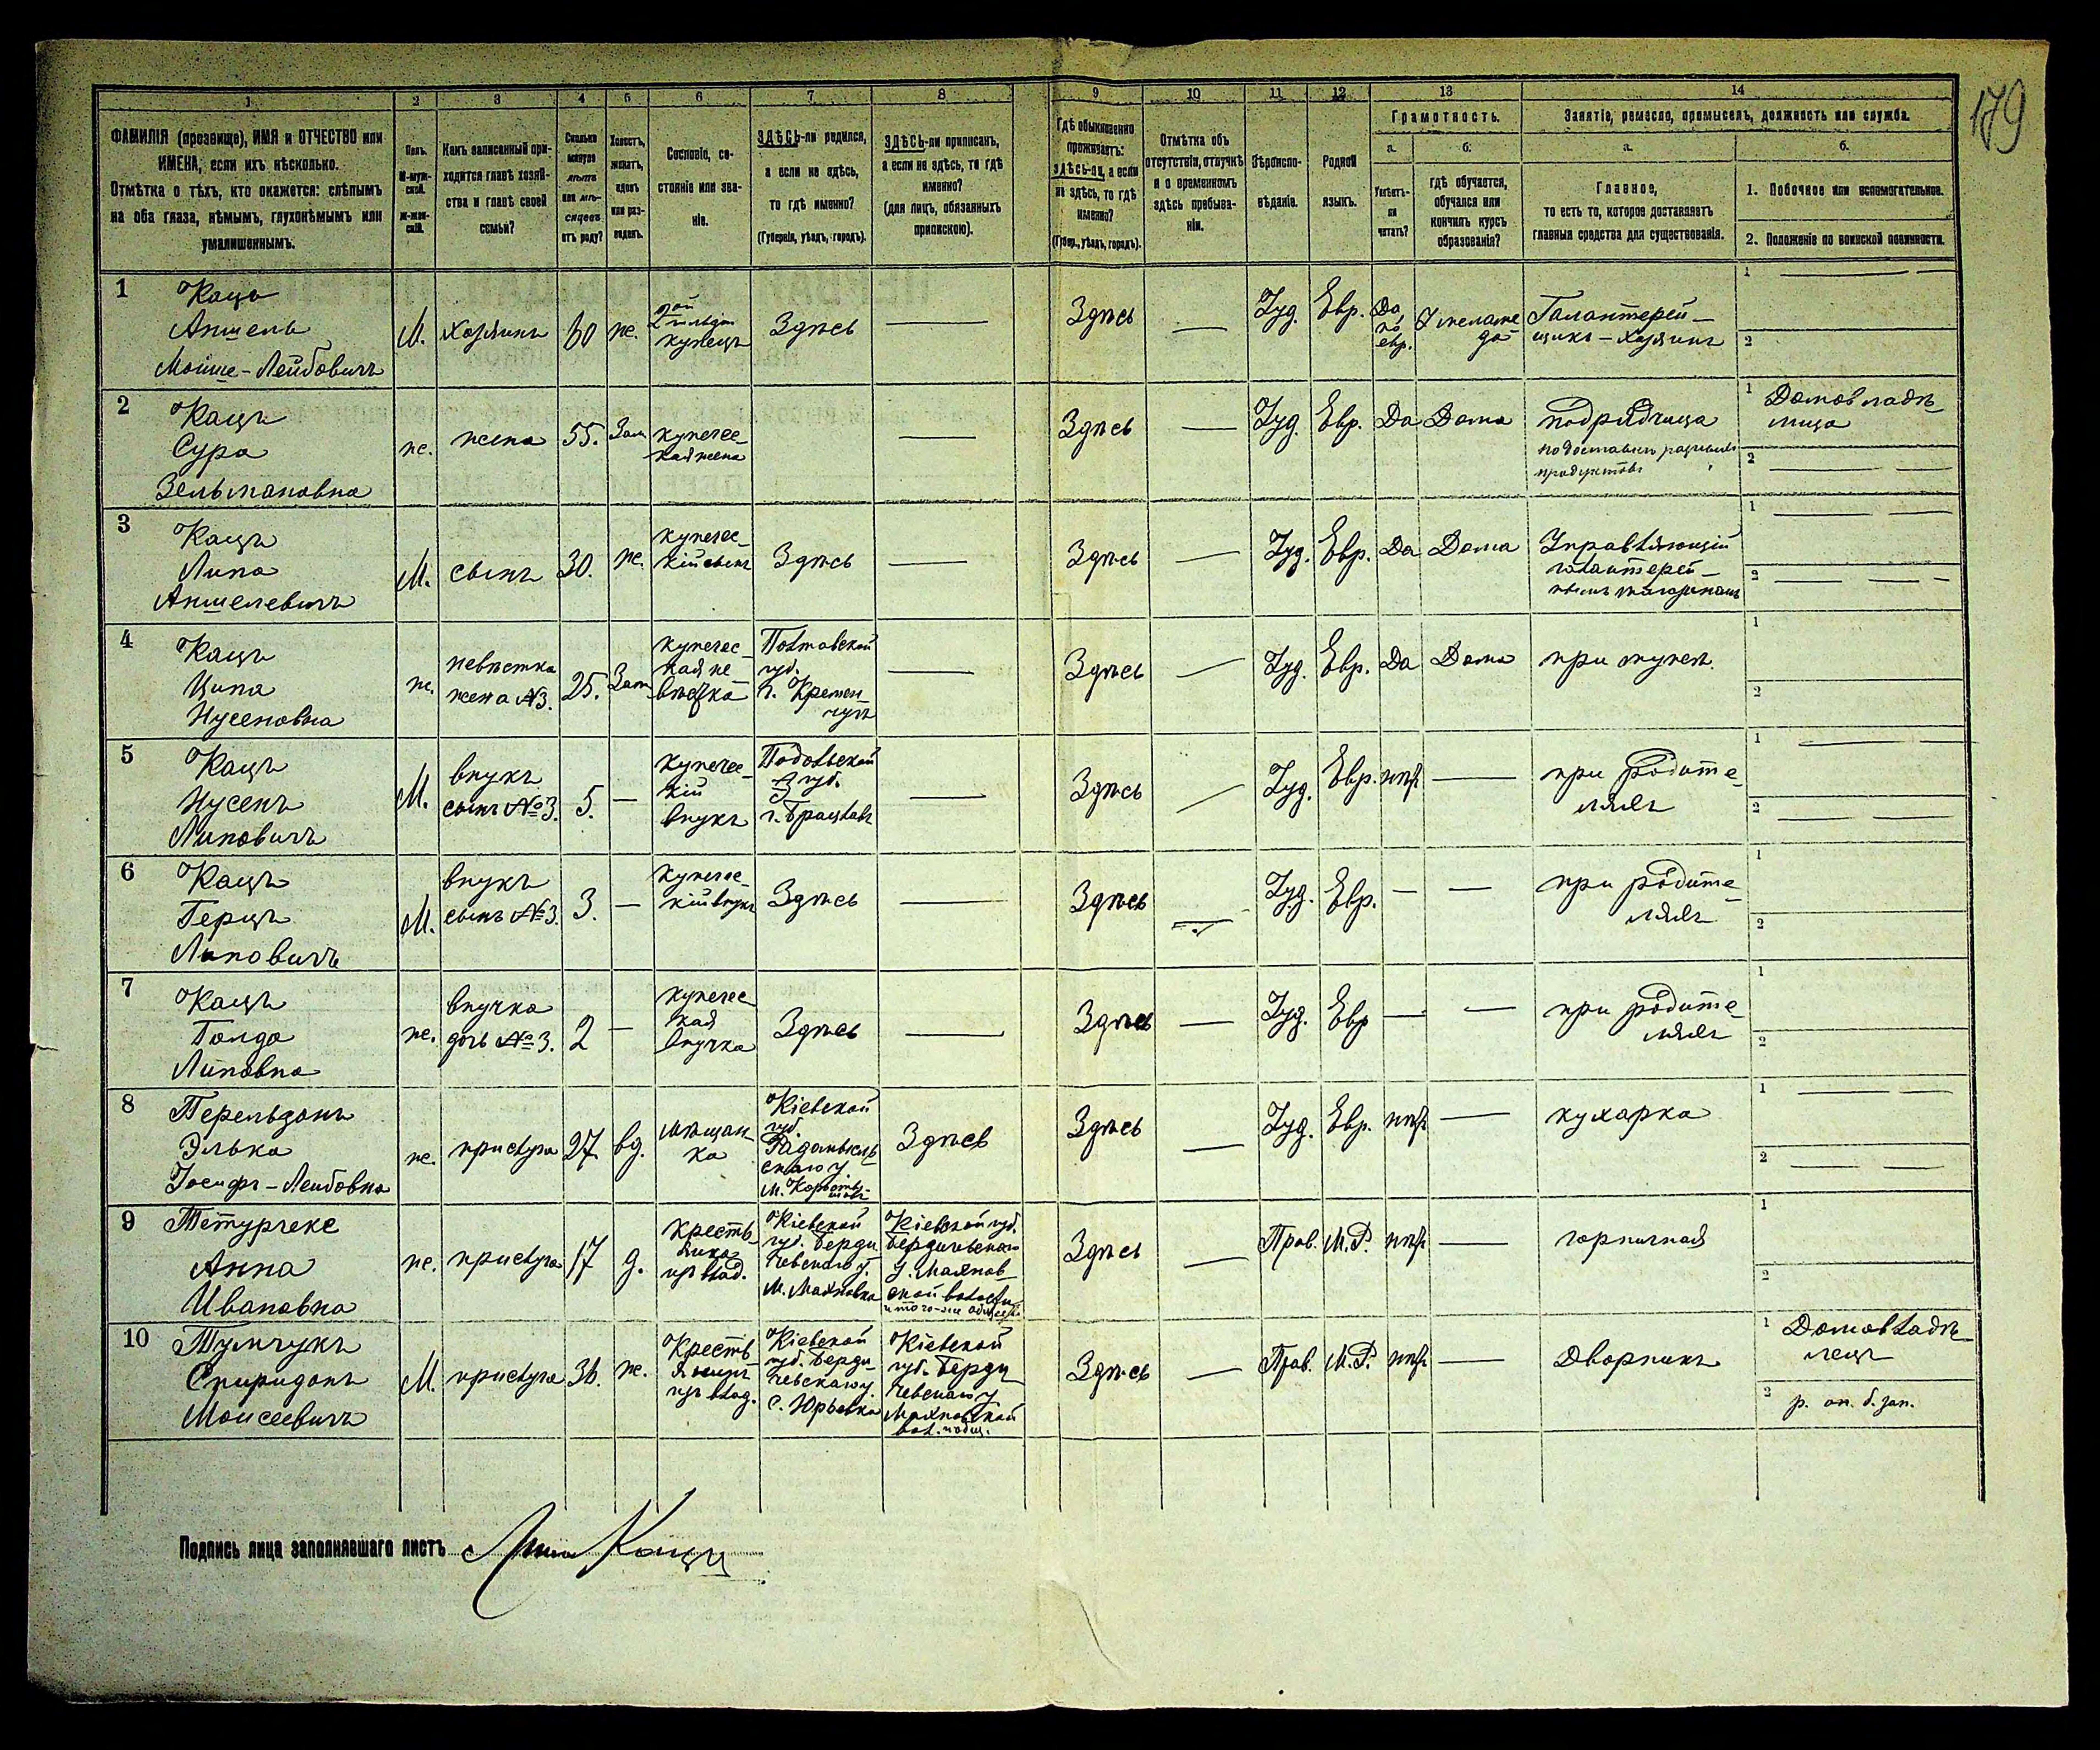 179
1 2 3 4 5 6 7 8 9 10 11 12 13 14
ФАМИЛІЯ (прозвище), ИМЯ и ОТЧЕСТВО или
ИМЕНА, если ихъ нѣсколько.
Отмѣтка о тѣхъ, кто окажется: слѣпымъ
на оба глаза, нѣмымъ, глухонѣмымъ или
умалишеннымъ.
Полъ.
М-муж-
ской.
Ж-жен-
скій.
Какъ записанный при-
ходится главѣ хозяй-
ства и главѣ своей
семьи?
Сколько
минуло
лѣтъ
или мѣ-
сяцевъ
отъ роду?
Холостъ,
женатъ,
вдовъ
или раз-
веденъ.
Сословіе, со-
стояніе или зва-
ніе.
ЗДѢСЬ-ли родился,
а если не здѣсь,
то гдѣ именно?
(Губернія, уѣздъ, городъ).
ЗДѢСЬ-ли приписанъ,
а если не здѣсь, то гдѣ
именно?
(для лицъ, обязанныхъ
припискою).
Гдѣ обыкновенно
проживаетъ:
ЗДѢСЬ-ли, а если
не здѣсь, то гдѣ
именно?
(Губер., уѣздъ, городъ).
Отмѣтка объ
отсутствіи, отлучкѣ
и о временномъ
здѣсь пребыва-
ніи.
Вѣроиспо-
вѣданіе.
Родной
языкъ.
Грамотность.
а. б.
Умѣетъ-
ли
читать?
гдѣ обучается,
обучался или
кончилъ курсъ
образованія?
Занятіе, ремесло, промыселъ, должность или служба.
а. б.
Главное,
то есть то, которое доставляетъ
главныя средства для существованія.
1. Побочное или вспомогательное.
2. Положеніе по воинской повинности.
1 Кацъ
Аншель
Мойше-Лейбовичъ
М. хозяинъ 60 ж.
2ой
гильдіи
купецъ
Здѣсь — Здѣсь — Іуд. Евр.
Да
по
евр.
У меламе
да
Галантерей-
щикъ - хозяинъ
1 —
2
2 Кацъ
Сура
Зельмановна
ж. жена 55. Зам
купечес-
кая жена
— Здѣсь — Іуд. Евр. Да Дома
подрядчица
по доставкѣ
продуктовъ
1 Домовладѣ-
лица
2 —
3 Кацъ
Липа
Аншелевичъ
М. сынъ 30. ж.
купечес-
кій сынъ
Здѣсь — Здѣсь — Іуд. Евр. Да Дома
Управляющій
галантерей-
нымъ магазиномъ
1 —
2 —
4 Кацъ
Ципа
Нусеновна
ж.
невѣстка
жена №3.
25. Зам
купечес-
кая не-
вѣстка
Полтавской
губ.
г. Кремен-
чугъ
— Здѣсь — Іуд. Евр. Да Дома при мужѣ.
1
2
5 Кацъ
Нусенъ
Липовичъ
М.
внукъ
сынъ №3.
5. —
купечес-
кій
внукъ
Подольской
губ.
г. Брацлавъ
— Здѣсь — Іуд. Евр. нѣтъ —
при родите-
ляхъ
1 —
2 —
6 Кацъ
Герцъ
Липовичъ
М.
внукъ
сынъ №3.
3. —
купечес-
кій внукъ
Здѣсь — Здѣсь — Іуд. Евр. — —
при родите-
ляхъ
1
2
7 Кацъ
Голда
Липовна
ж.
внучка
дочь №3.
2 —
купечес-
кая
внучка
Здѣсь — Здѣсь — Іуд. Евр — —
при родите-
ляхъ
1
2
8 Перельдонъ
Элька
Іосифъ-Лейбовна
ж. прислуга 27 вд.
мѣщан-
ка
Кіевской
губ.
Радомысль-
скаго у.
Здѣсь Здѣсь — Іуд. Евр. нѣтъ — кухарка
1 —
2 —
9 Тетурчекс
Анна
Ивановна
ж. прислуга 17 д.
Кресть-
янка
изъ влад.
Кіевской
губ. Берди
чевскаго у.
М. Махновка
Кіевской губ.
Бердичевскаго
у. Махнов-
ской волости
и того-же общества
Здѣсь — Прав. М.Р. нѣтъ — горничная
1
2
10 Тумчукъ
Спиридонъ
Моисеевичъ
М. прислуга 36. ж.
Кресть-
янинъ
изъ влад.
Кіевской
губ. Берди-
чевскаго у.
С. Юрьевка
Кіевской
губ. Берди
чевскаго у
Махновской
вол. и общ.
Здѣсь — Прав. М.Р. нѣтъ — Дворникъ
1 Домовладѣ-
лецъ
2 р. оп. б. зап.
Подпись лица заполнявшаго листъ Липа Кацъ